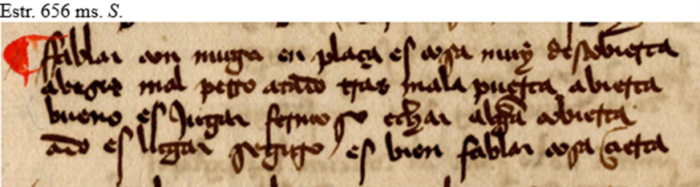 Estr. 656 ms. S.
fablar con muger en plaça es cosa muy descobierta
a bezes mal perro atado tras mala puerta abierta
bueno es jugar fermoso echar alguna cobierta
ado es lugar seguro es bien fablar cosa çierta